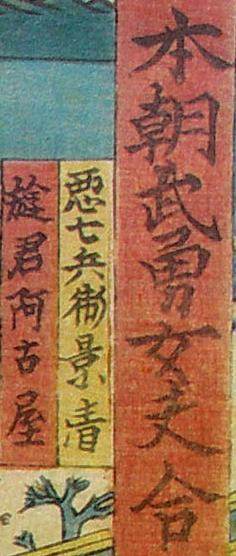 本朝武勇女夫合
悪七兵衛景清
遊君阿古屋